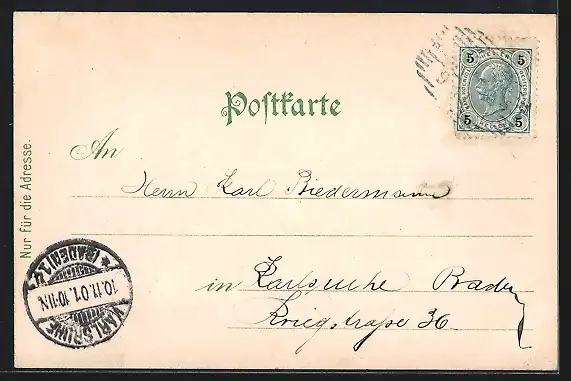 Postkarte
An
Herrn Karl Biedermann
in Karlsruhe Baden
Kriegstraße 36
Nur für die Adresse.
5 HELLER 5
5 HELLER 5
KARLSRUHE
10.11.01.10-11N.
(BADEN)1.